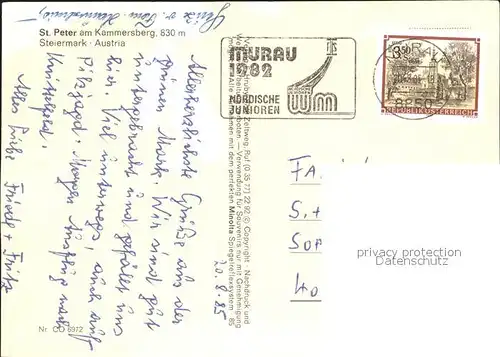 St. Peter am Kammersberg, 830 m
Steiermark · Austria
Allerherzlichste Grüße aus der
grünen Mark. Wir sind gut
untergebracht und gefällt uns
hier. Viel unterwegs, auch auf
Pilzjagd. Morgen Ausflug nach
Knittelfeld.
Alles Liebe Friedl + Fritz
20.8.85
Nr. CO 6972
MURAU
1982
NORDISCHE
JUNIOREN
8850
3.50
REPUBLIK ÖSTERREICH
Zeltweg, Ruf (0 35 77) 22 92 © Copyright - Nachdruck und
verboten. — Verwendung für Souvenirs nur mit Genehmigung
Alle Aufnahmen mit dem perfekten Minolta Spiegelreflexsystem 85
FA
S.+
SOP
HO
privacy protection
Datenschutz